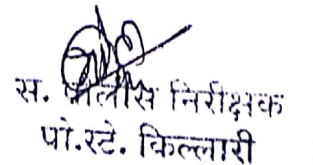 स. पोलीस निरीक्षक
पो.स्टे. किल्लारी